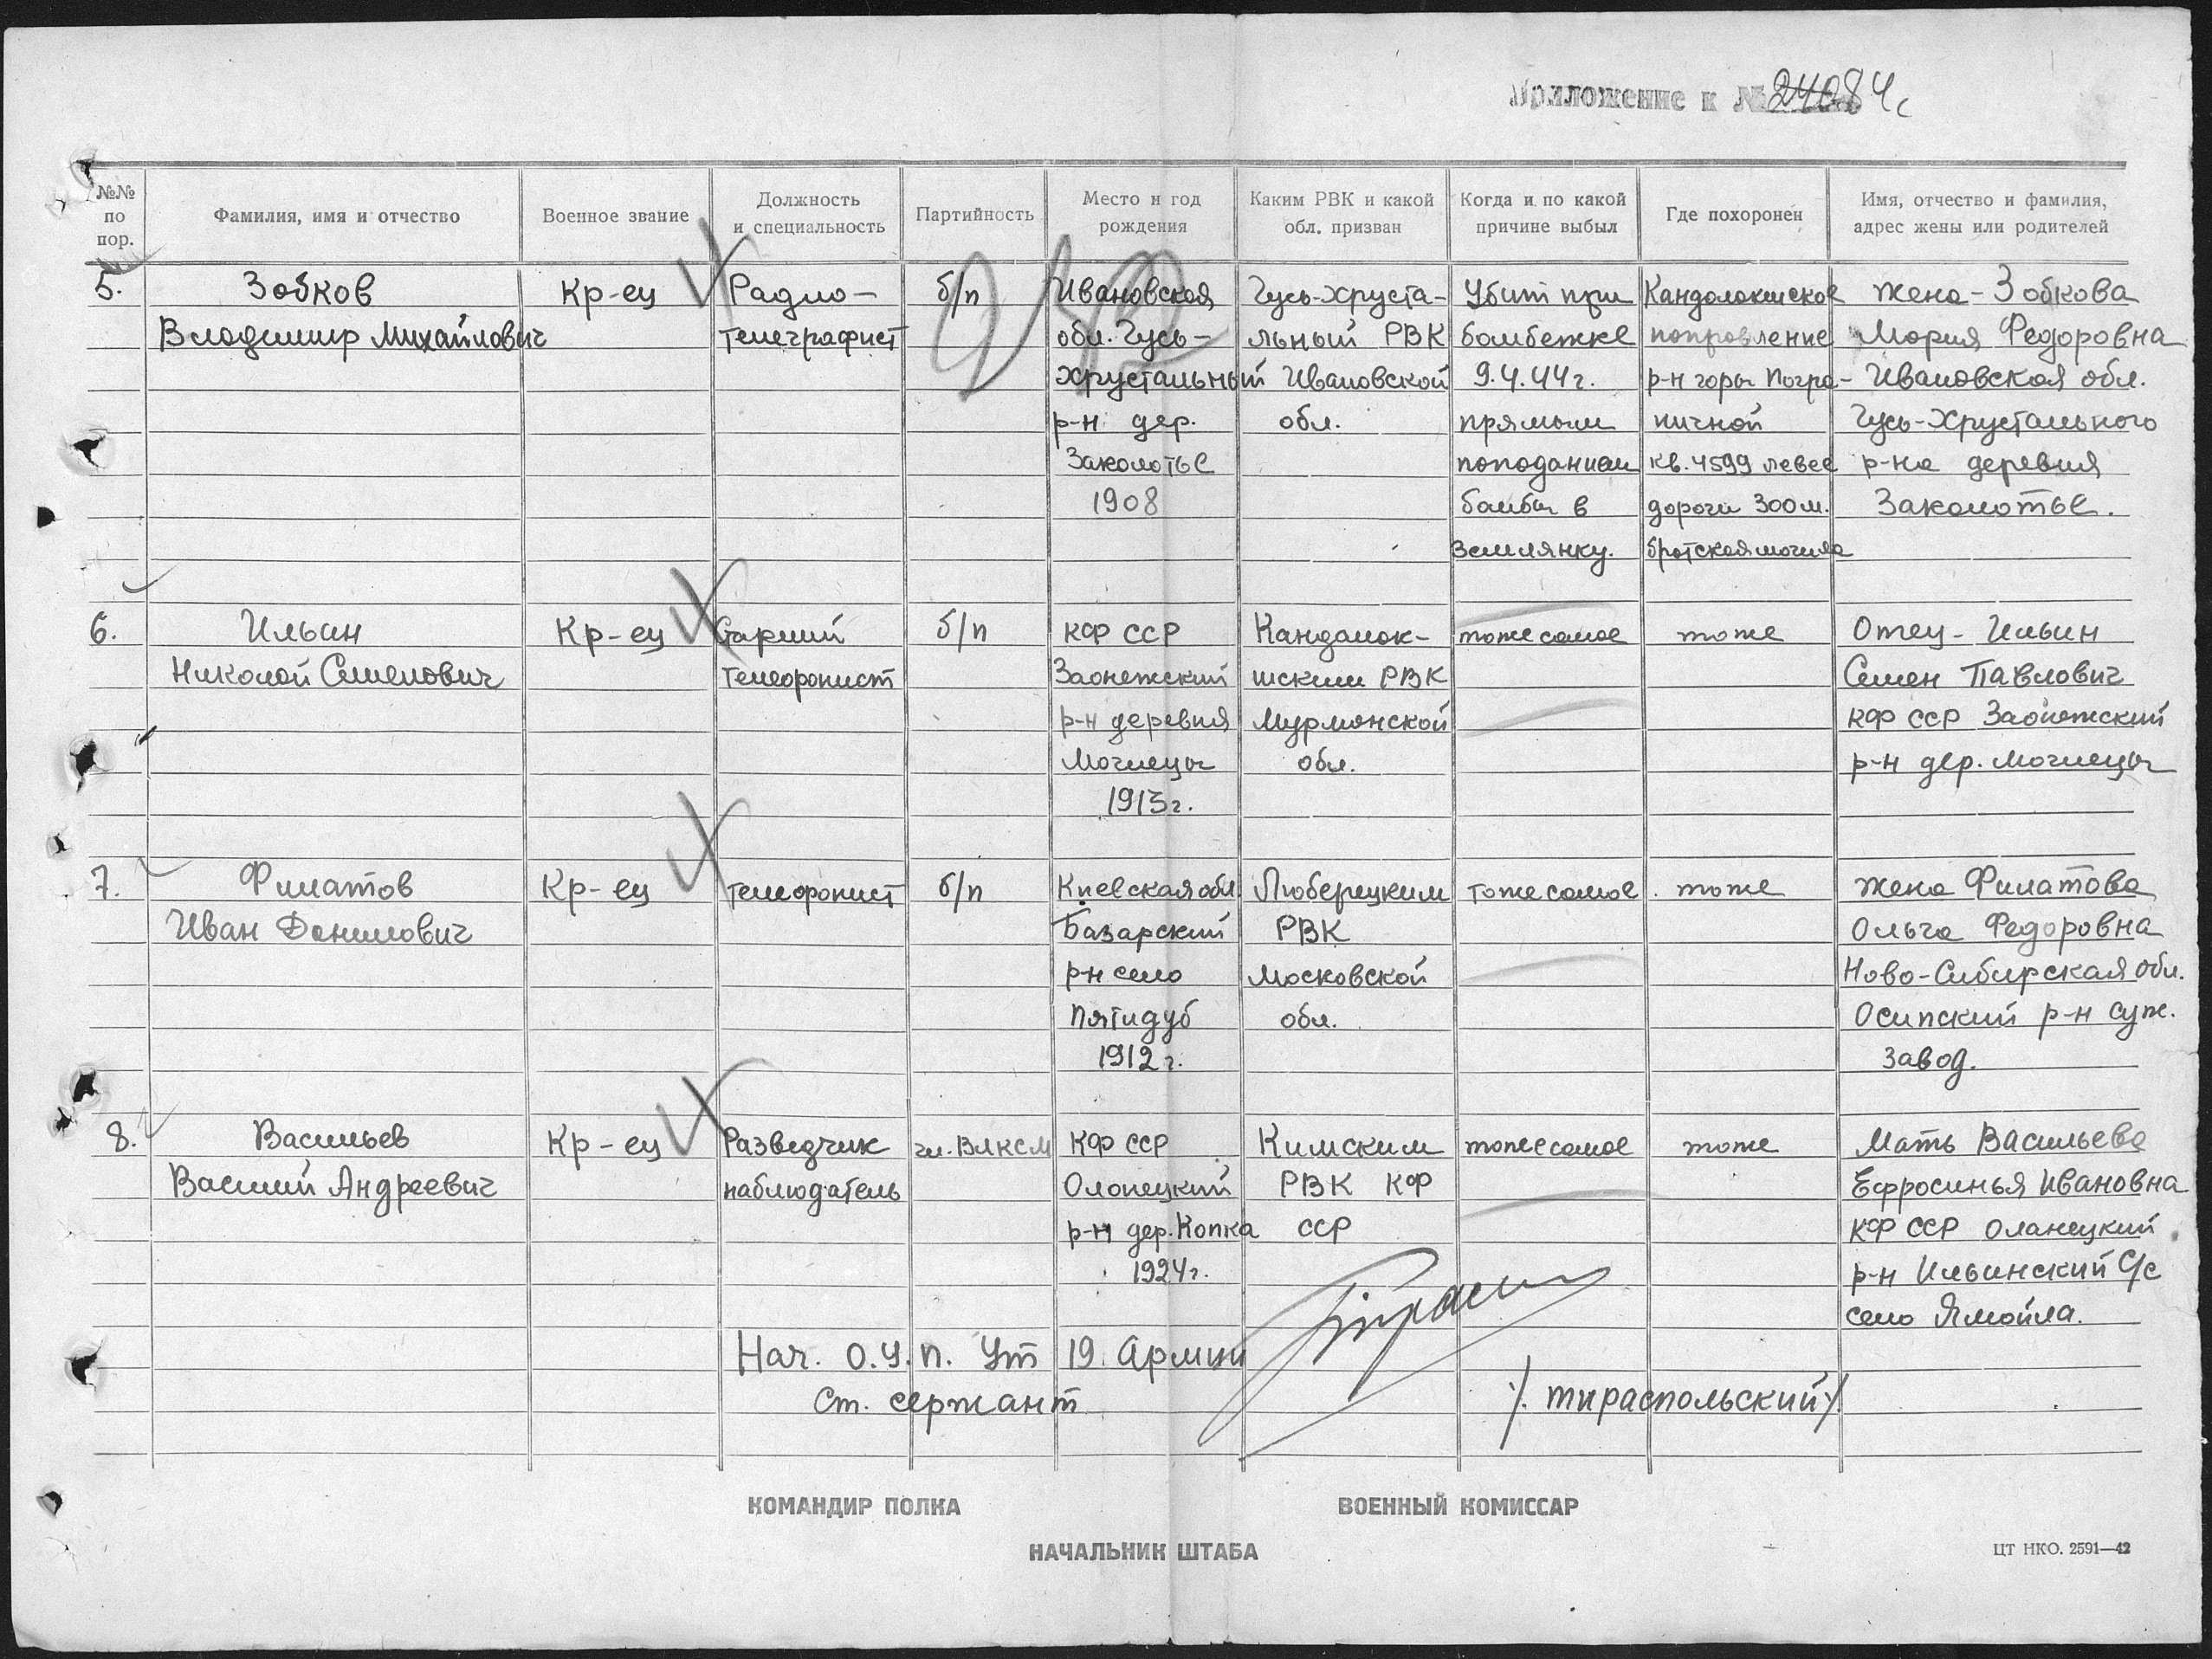 Приложение к № 24084с
№№ по пор.
Фамилия, имя и отчество
Военное звание
Должность и специальность
Партийность
Место и год рождения
Каким РВК и какой обл. призван
Когда и по какой причине выбыл
Где похоронен
Имя, отчество и фамилия, адрес жены или родителей
5.
Зобков
Владимир Михайлович
Кр-ец
Радио-
телеграфист
б/п
Ивановская
обл. Гусь-
Хрустальный
р-н дер.
Заколотье
1908
Гусь-Хруста-
льный РВК
Ивановской
обл.
Убит при
бомбежке
9.4.44г.
прямым
поподанием
бомбы в
землянку.
Кандолокшское
попровление
р-н горы Погра-
ничной
кв. 4599 левее
дороги 300м.
братская могила
жена - Зобкова
Мария Федоровна
Ивановская обл.
Гусь-Хрустального
р-на деревня
Заколотье.
6.
Ильин
Николай Семенович
Кр-ец
Старший
телефонист
б/п
КФ ССР
Заонежский
р-н деревня
Могилецы
1913г.
Кандалок-
шским РВК
Мурманской
обл.
тоже самое
тоже
Отец - Ильин
Семен Павлович
КФ ССР Заонежский
р-н дер. Могилецы
7.
Филатов
Иван Данилович
Кр-ец
телефонист
б/п
Киевская обл.
Базарский
р-н село
Пятидуб
1912г.
Люберецким
РВК
Московской
обл.
тоже самое
тоже
жена Филатова
Ольга Федоровна
Ново-Сибирская обл.
Осипский р-н суж.
завод.
8.
Васильев
Василий Андреевич
Кр-ец
Разведчик
наблюдатель
чл. ВЛКСМ
КФ ССР
Олонецкий
р-н дер. Копка
1924г.
Кимским
РВК КФ
ССР
тоже самое
тоже
Мать Васильева
Ефросинья Ивановна
КФ ССР Оланецкий
р-н Ильинский С/с
село Ямойла.
Нач. О.У.П. Ут 19 Армии
Ст. сержант
/. тираспольский ./
КОМАНДИР ПОЛКА
ВОЕННЫЙ КОМИССАР
НАЧАЛЬНИК ШТАБА
ЦТ НКО. 2591—42